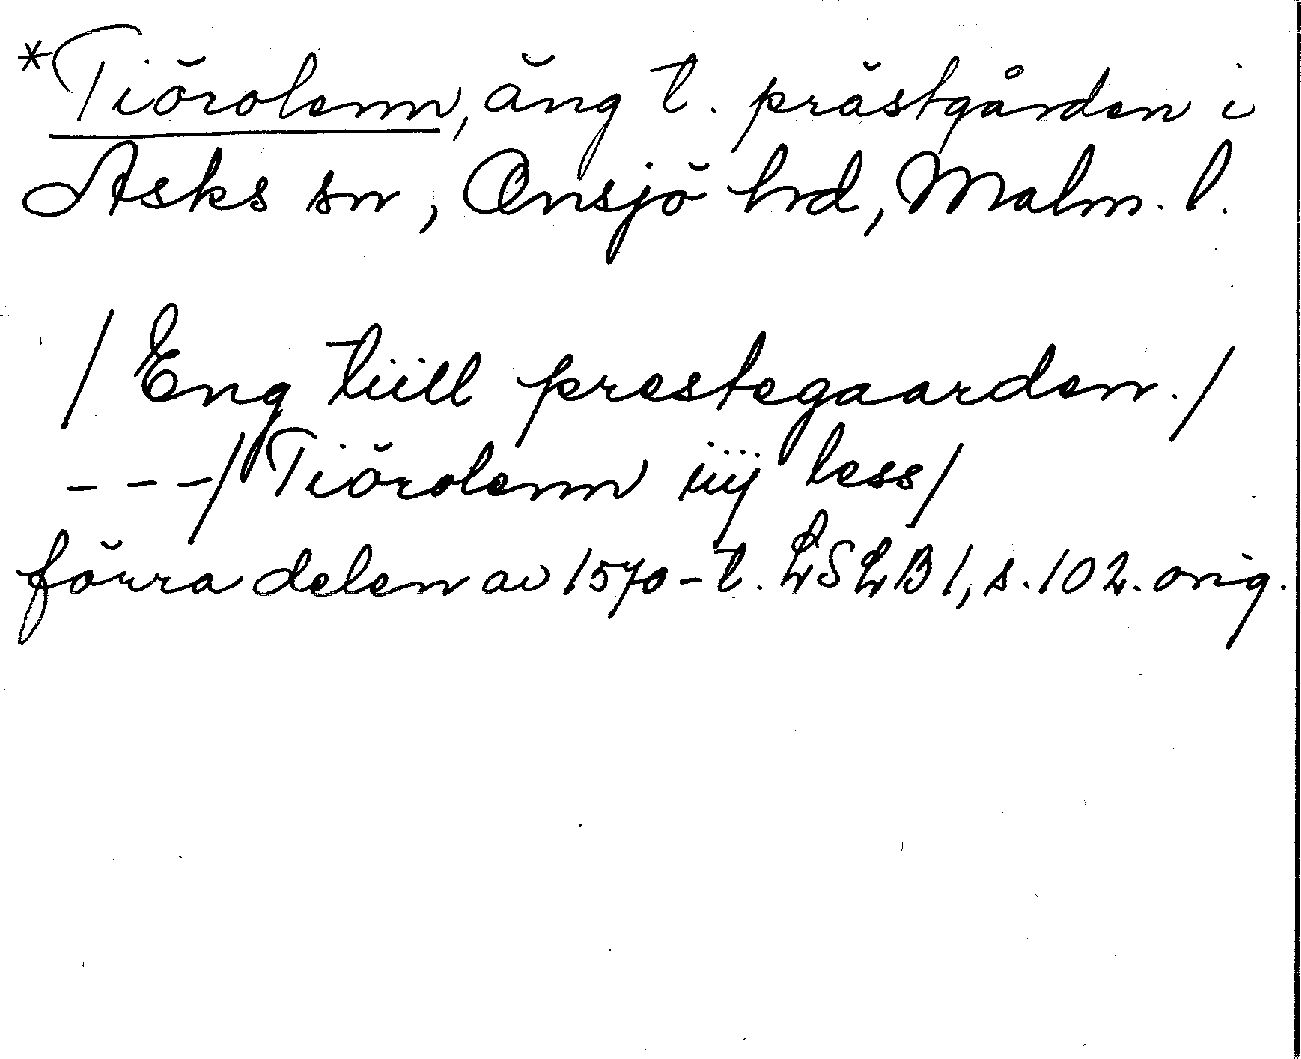 *Tiörolenn, äng t. prästgården i
Asks sn, Onsjö hrd, Malm. l.
/Eng tiill prestegaarden./
---/Tiörolenn iiij less/
förra delen av 1570-t. LSLB 1, s. 102. orig.